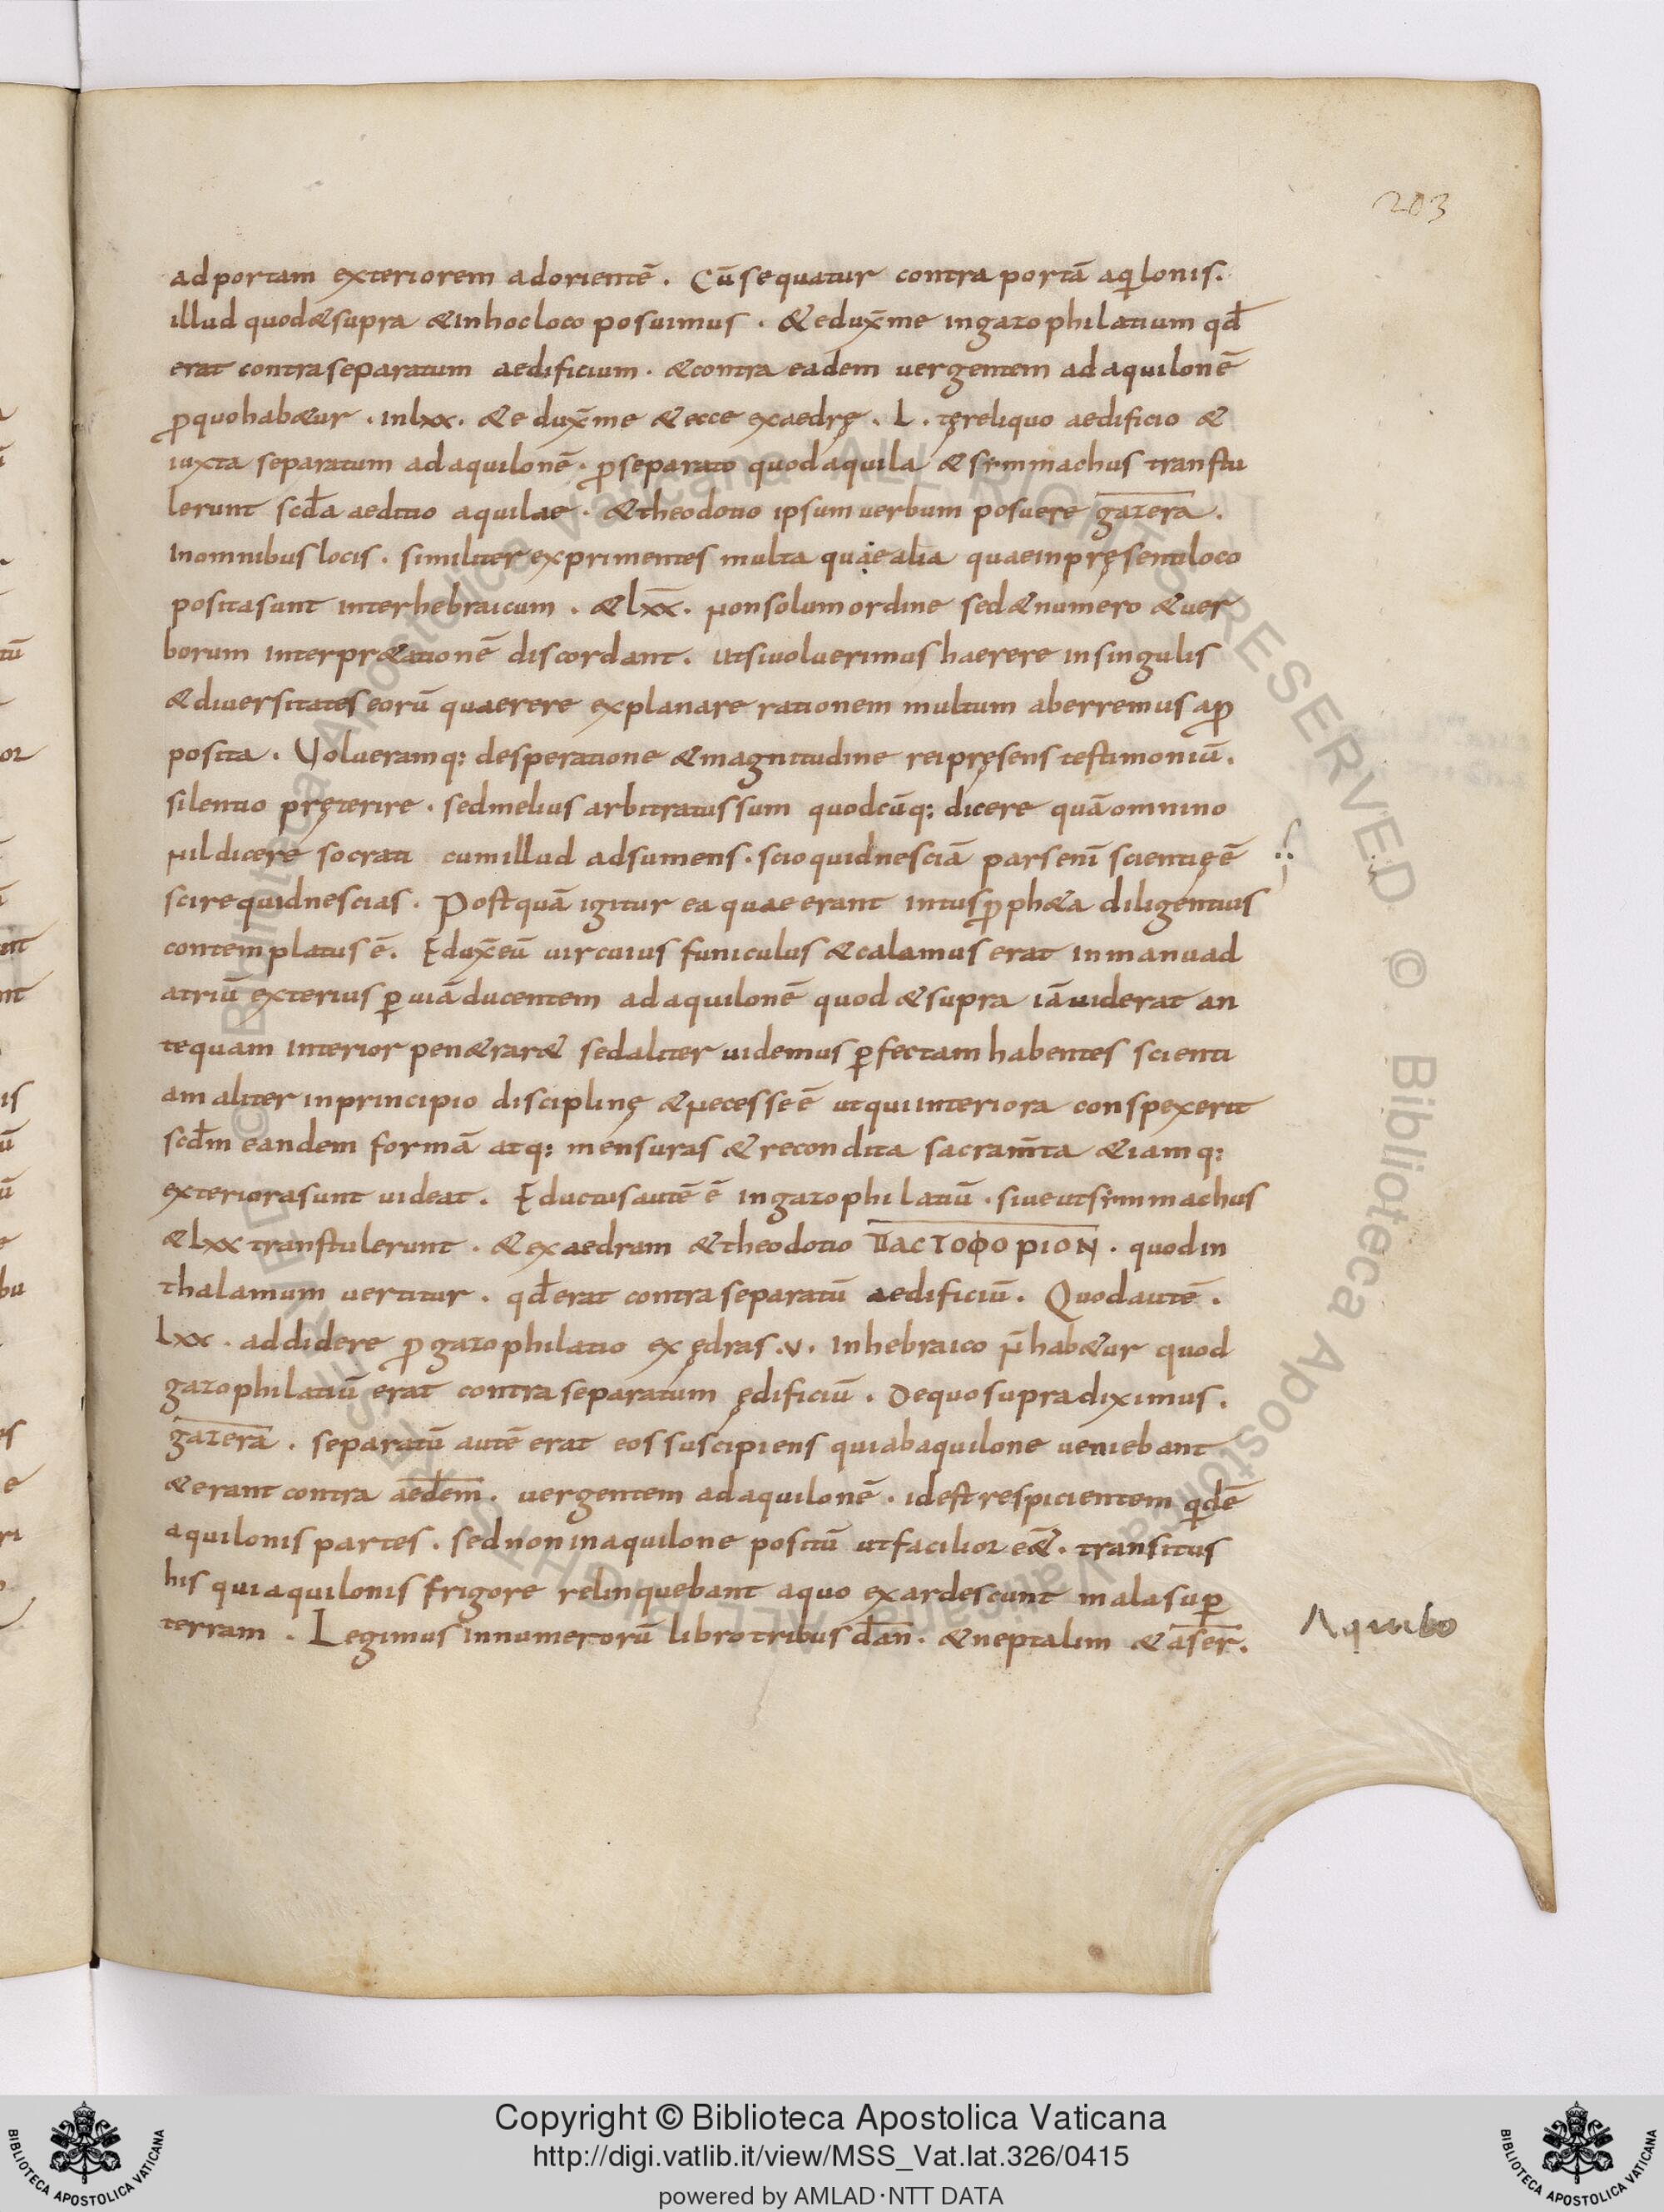 203
ad portam exteriorem ad orientē. Cū sequatur contra portā aq̇lonis.
illud quod & supra & in hoc loco posuimus. & edux̄ me in gazophilatium qd̄
erat contra separatum aedificium. & contra eadem uergentem ad aquilonē
ꝓ quo hab&ur. in lxx. & edux̄ me & ecce exaedrę. L. tę reliquo aedificio &
iuxta separatum ad aquilonē. ꝓ separato quod aquila & simmachus transtu
lerunt scd̄a aeditio aquilae. & theodotio ipsum uerbum posuere gazera.
In omnibus locis. similiter exprimentes multa quae alia quae in pręsenti loco
posita sunt inter hebraicum. & lxx̄. non solum ordine sed & numero & uer
borum interpr&ationē discordant. ut si uoluerimus haerere in singulis
& diuersitates eorū quaerere explanare rationem multum aberremus a ꝓ
posita. Volueramq: desperatione & magnitudine rei pręsens testimoniū.
silentio pręterire. sed melius arbitratus sum quodcūq: dicere quā omnino
nil dicere socrati cum illud adsumens. scio quid nesciā pars eni̅ scientię ē
scire quid nescias. Postquā igitur ea quae erant intus ꝓph&a diligentius
contemplatus ē. Edux̄ eū uir cuius funiculus & calamus erat in manu ad
atriū exterius ꝑ uiā ducentem ad aquilonē quod & supra iā uiderat an
tequam interior pen&rar& sed aliter uidemus ꝑfectam habentes scienti
am aliter in principio disciplinę & necesse ē ut qui interiora conspexerit
scd̄m eandem formā atq: mensuras & recondita sacram̄ta & iamq:
exteriora sunt uideat. Eductus autē ē in gazophilatiū. siue ut simmachus
& lxx transtulerunt. & exaedram & theodotio ΠΑCΤΟΦΟΡΙΟΝ. quod in
thalamum uertitur. qd̄ erat contra separatū aedificiū. Quod autē.
Lxx. addidere ꝓ gazophilatio exędras .v. in hebraico n̄ hab&ur quod
gazophilatiū erat contra separatum ędificiū. De quo supra diximus.
gazera. separatū autē erat eos suscipiens qui ab aquilone ueniebant
& erant contra aed̄em. uergentem ad aquilonē. id est respicientem q̇dē
aquilonis partes. sed non in aquilone positū ut facilior e&̄. transitus
his qui aquilonis frigore relinquebant a quo exardescunt mala suꝑ
terram. Legimus in numerorū libro tribus dān. & neptalim & as̄er.
Aquilo
Copyright © Biblioteca Apostolica Vaticana
http://digi.vatlib.it/view/MSS_Vat.lat.326/0415
powered by AMLAD·NTT DATA